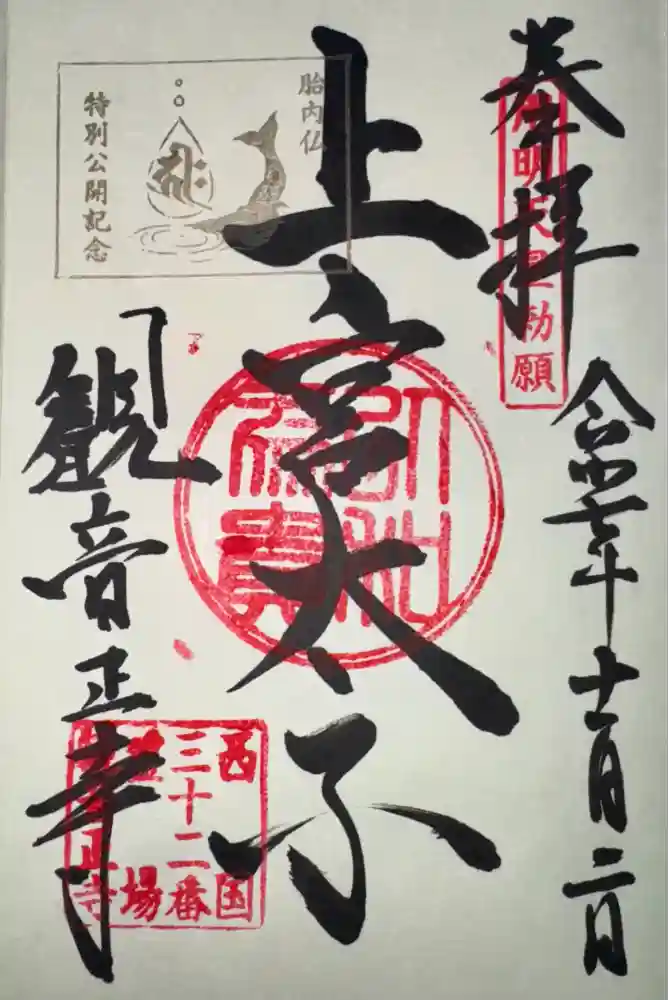 奉拝
令和七年十一月二日
用明天皇勅願
上宮太子
胎内仏
特別公開記念
観音正寺
西国
三十二番
霊場
観音正寺